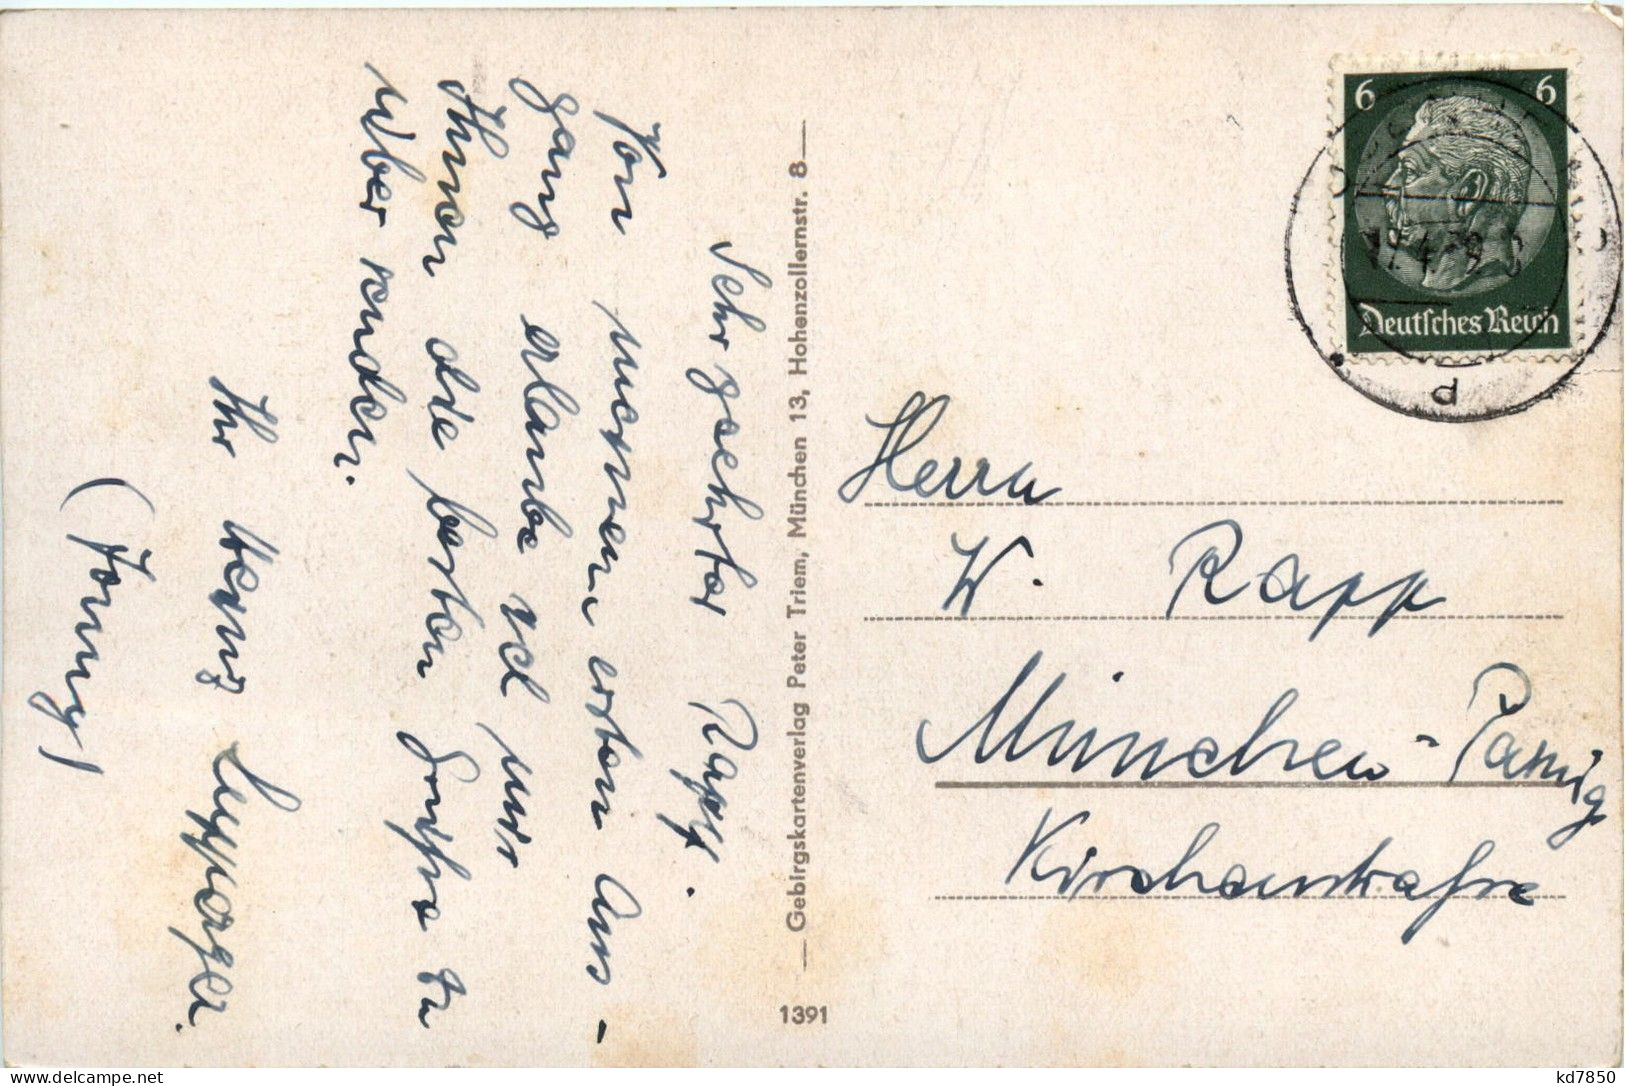 Sehr geehrter Rapp.
Von meinem ersten Aus-
gang erlaube ich mir
Ihnen die besten Grüße zu
übersenden.
Ihr Heinz
Gebirgskartenverlag Peter Triem, München 13, Hohenzollernstr. 8
1391
6 6
Deutsches Reich
d
Herrn
W. Rapp
München-Pasing
Kirchenstraße
kd7850